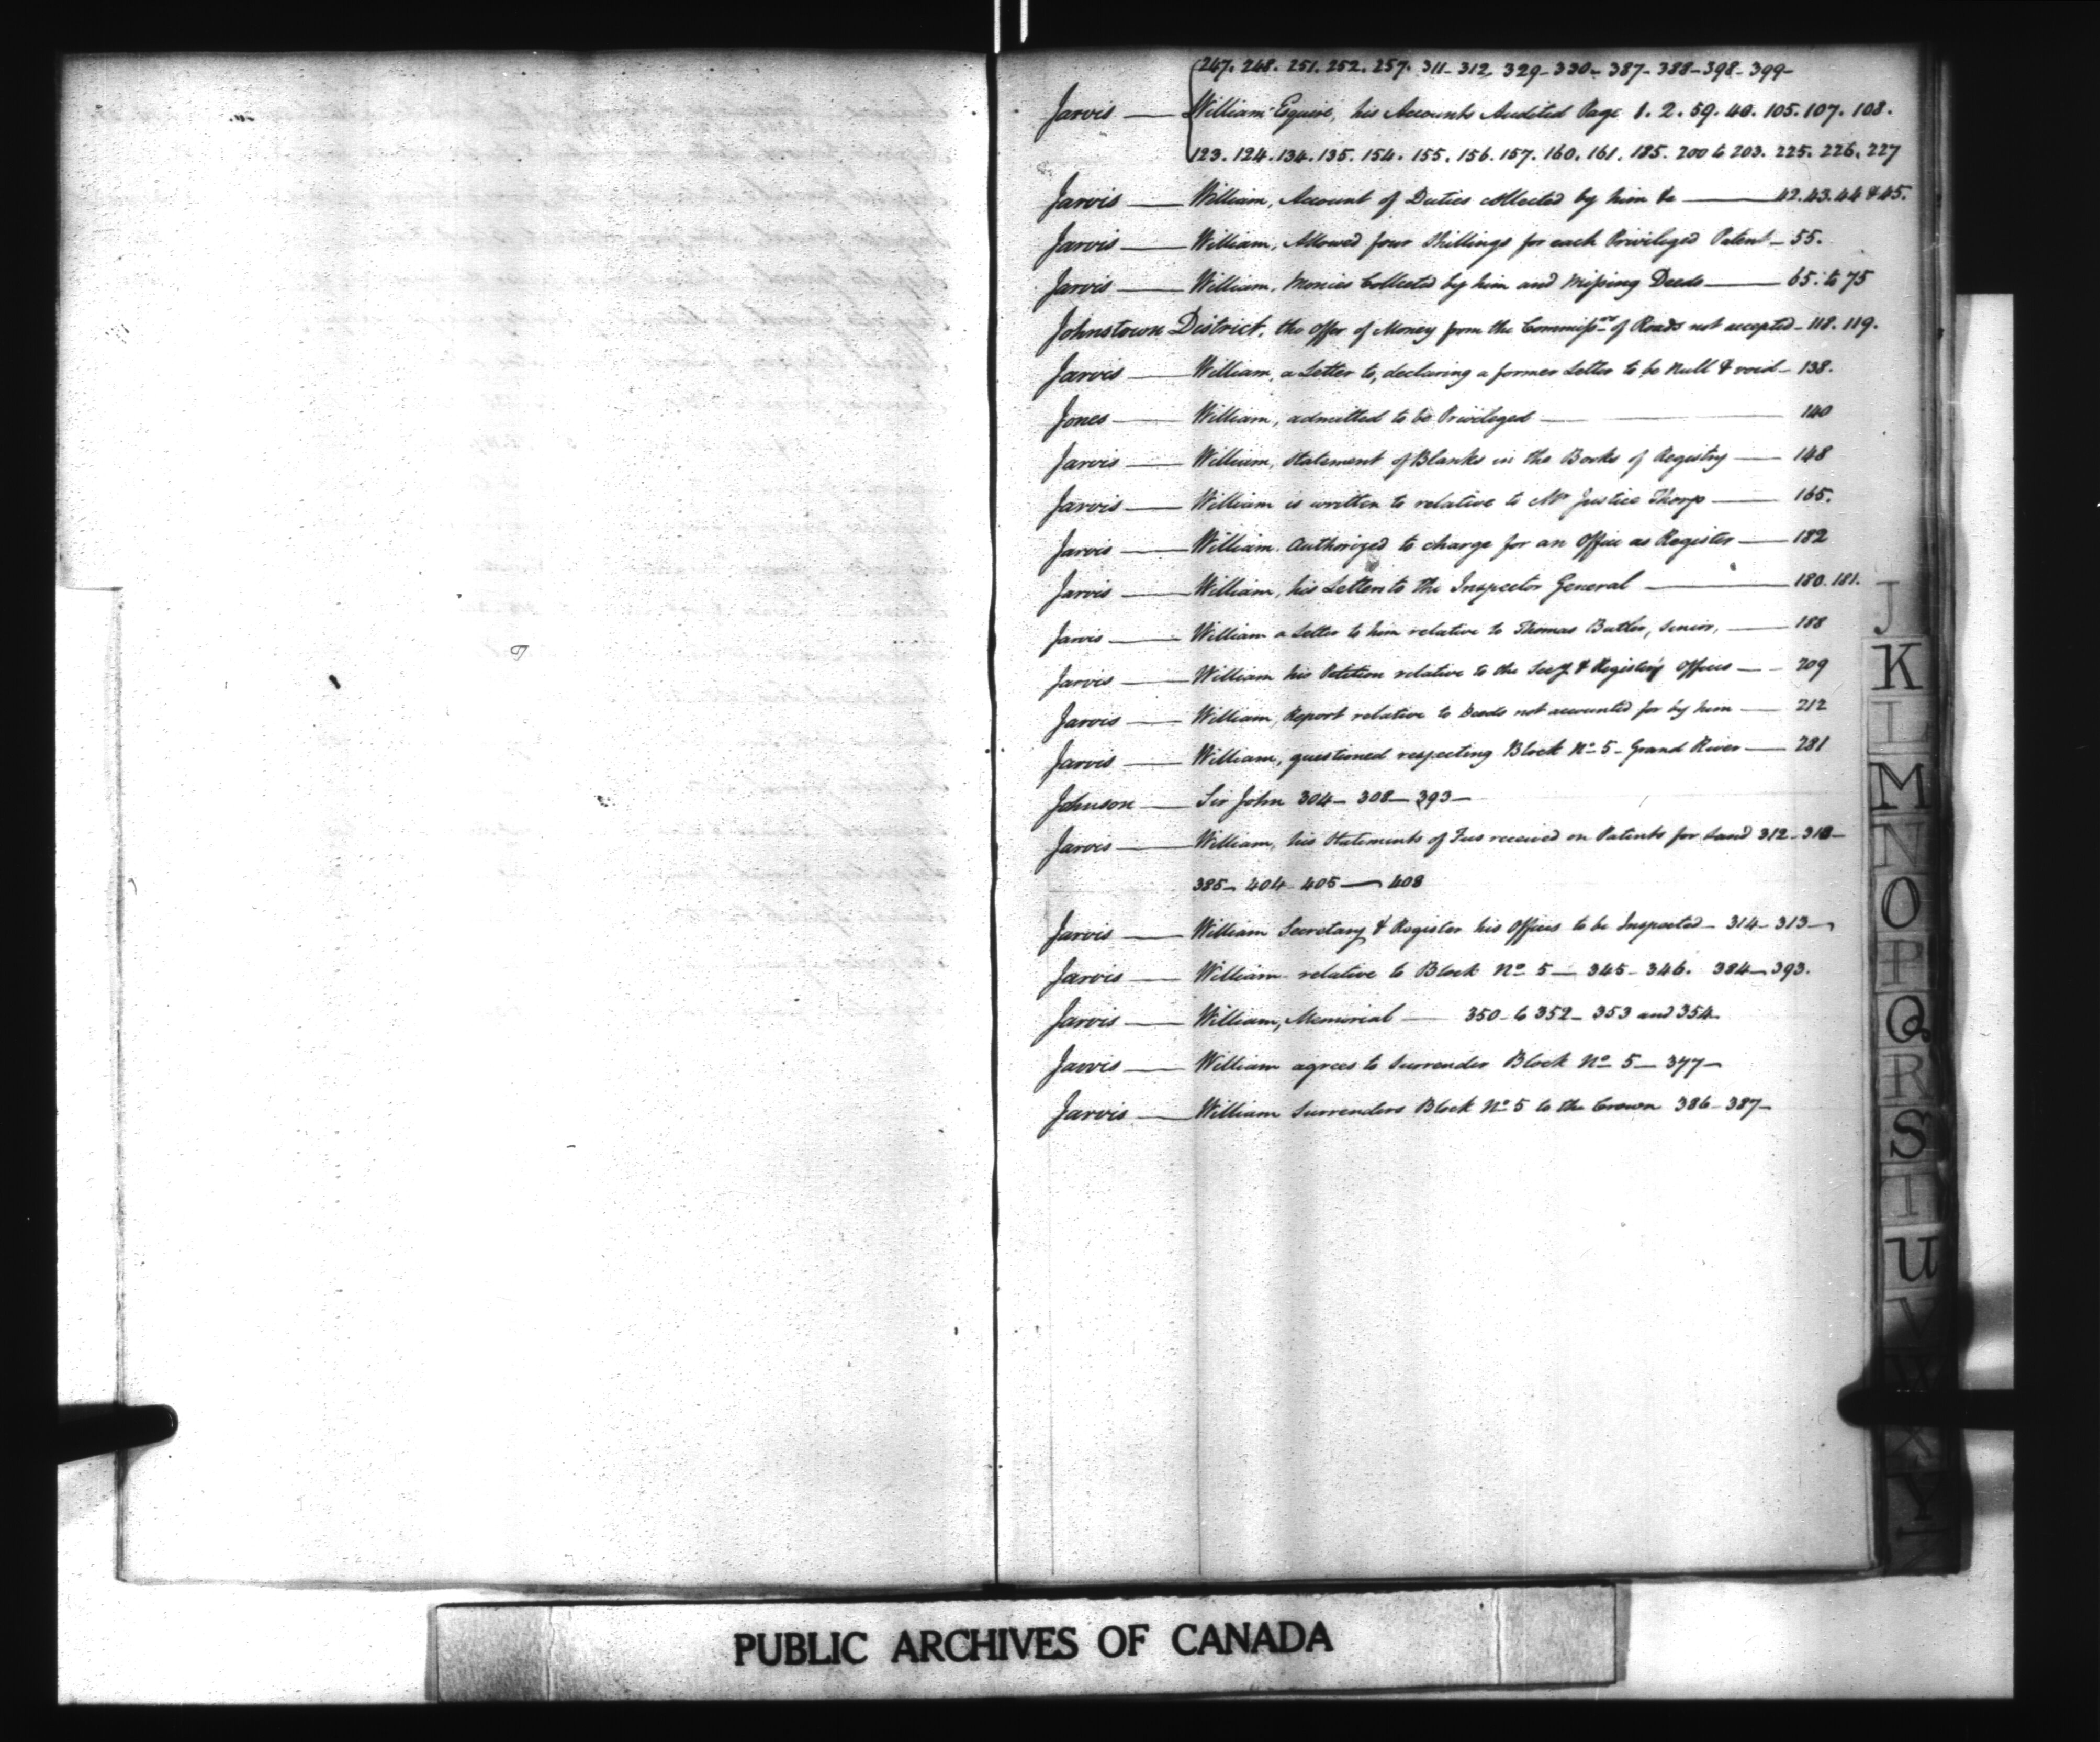 247. 248. 251. 252. 257. 311- 312 329- 330- 387- 388- 398- 399-
Jarvis — William Esquire, his Accounts Audited Page 1. 2. 59. 40. 105. 107. 108.
123. 124. 134. 135. 154. 155. 156. 157. 160. 161. 185. 200 to 203. 225. 226. 227
Jarvis — William, Account of Duties collected by him &c — 42. 43. 44 & 45.
Jarvis — William, Allowed four Shillings for each Privileged Patent — 55.
Jarvis — William, Monies Collected by him and Missing Deeds — 65. to 75
Johnstown District, the offer of Money from the Commissrs of Roads not accepted — 118. 119.
Jarvis — William, a Letter to, declaring a former Letter to be Null & void — 138.
Jones — William, admitted to be Privileged — 140
Jarvis — William, Statement of Blanks in the Books of Registry — 148
Jarvis — William is written to relative to Mr Justice Thorp — 165.
Jarvis — William. Authorized to charge for an Office as Register — 182
Jarvis — William, his Letter to the Inspector General — 180. 181.
Jarvis — William a Letter to him relative to Thomas Butler, Senior, — 188
Jarvis — William his Petition relative to the Secy & Registers Offices — 209
Jarvis — William, Report relative to Deeds not accounted for by him — 212
Jarvis — William, questioned respecting Block No 5 - Grand River — 281
Johnson — Sir John 304 — 308 — 393 —
Jarvis — William, his Statements of Fees received on Patents for Land 312 - 313 —
385 — 404 - 405 — 408
Jarvis — William Secretary & Register his Offices to be Inspected — 314 - 313 —
Jarvis — William relative to Block No 5 — 345 - 346. 384 — 393.
Jarvis — William, Memorial — 350 to 352 — 353 and 354
Jarvis — William agrees to Surrender Block No 5 — 377 —
Jarvis — William Surrenders Block No 5 to the Crown 386 - 387 —
J
K
L
M
N
O
P
Q
R
S
T
U
V
W
X
Y
Z
PUBLIC ARCHIVES OF CANADA